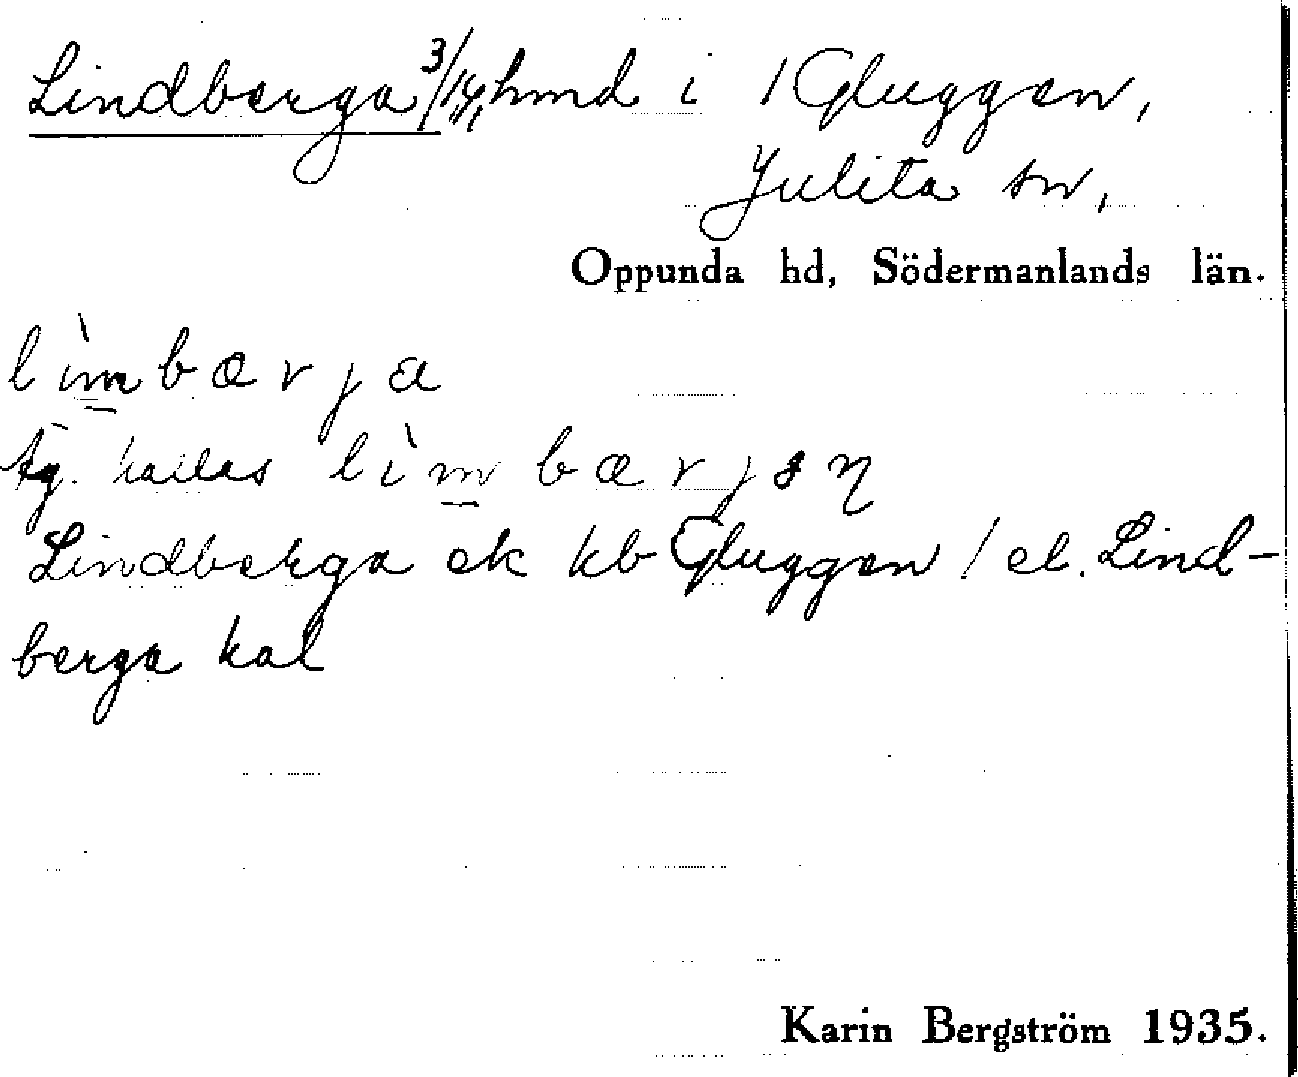 Lindberga 3/14, hmd i 1 Gluggen,
Julita sn,
Oppunda hd, Södermanlands län.
lìmbærja
äg. kallas lìmbærjən
Lindberga ek kb Gluggen / el. Lind-
berga kal
Karin Bergström 1935.